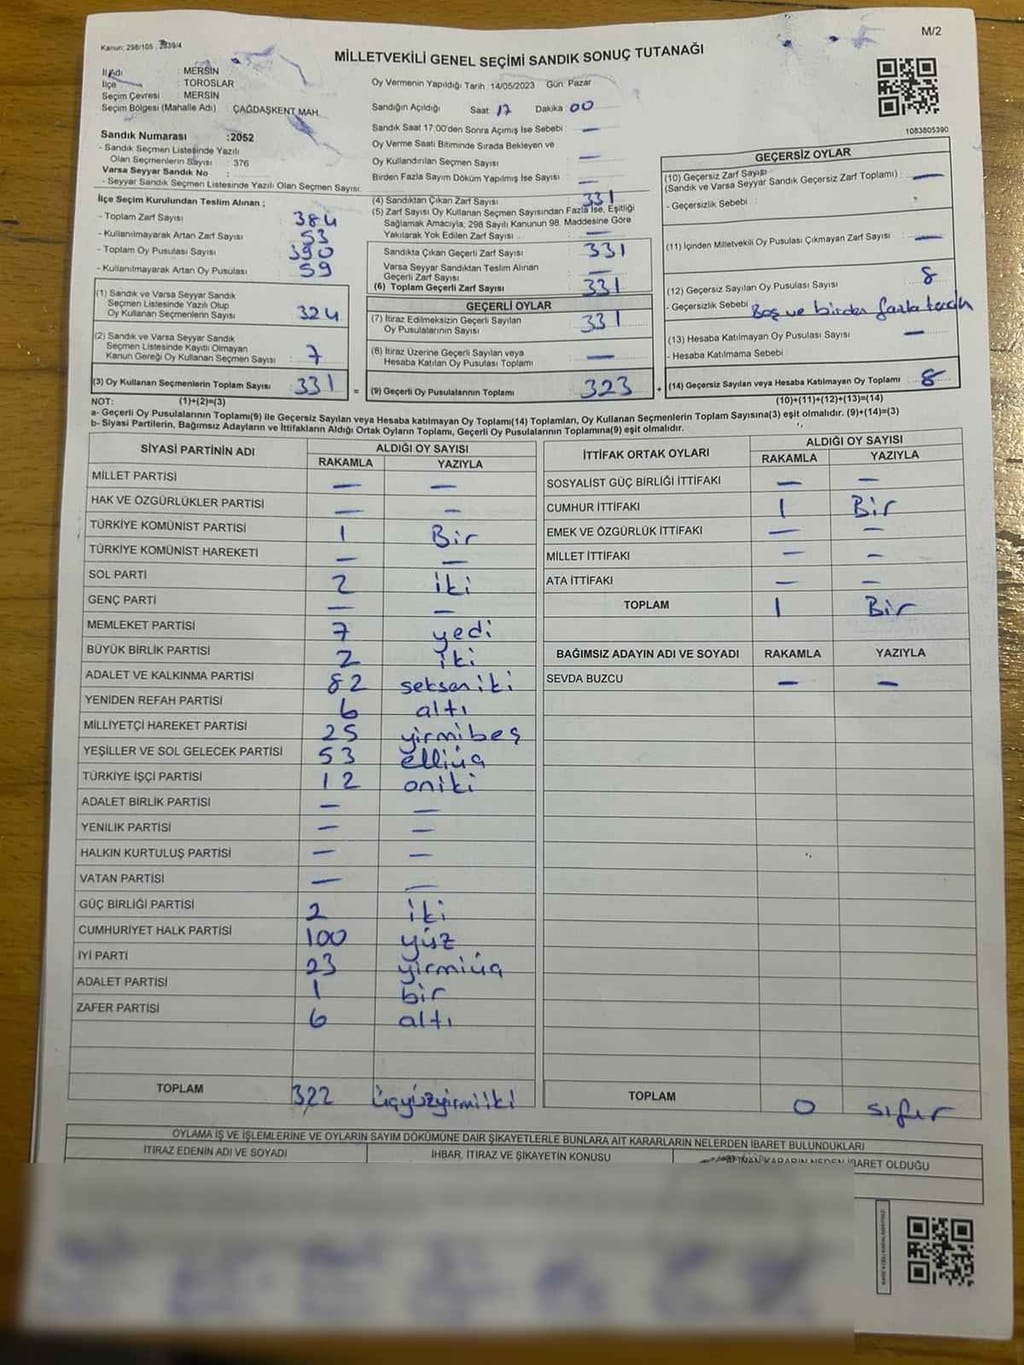 M/2
Kanun: 298/105 , 2839/4
MİLLETVEKİLİ GENEL SEÇİMİ SANDIK SONUÇ TUTANAĞI
İl Adı : MERSİN
İlçe : TOROSLAR
Seçim Çevresi : MERSİN
Seçim Bölgesi (Mahalle Adı) : ÇAĞDAŞKENT MAH.
Sandık Numarası :2052
- Sandık Seçmen Listesinde Yazılı
Olan Seçmenlerin Sayısı : 376
Varsa Seyyar Sandık No :
- Seyyar Sandık Seçmen Listesinde Yazılı Olan Seçmen Sayısı:
Oy Vermenin Yapıldığı Tarih : 14/05/2023 Gün: Pazar
Sandığın Açıldığı Saat 17 Dakika 00
Sandık Saat 17:00'den Sonra Açımış İse Sebebi : —
Oy Verme Saati Bitiminde Sırada Bekleyen ve
Oy Kullandırılan Seçmen Sayısı : —
Birden Fazla Sayım Döküm Yapılmış İse Sayısı : —
1083805390
İlçe Seçim Kurulundan Teslim Alınan ;
- Toplam Zarf Sayısı : 384
- Kullanılmayarak Artan Zarf Sayısı : 53
- Toplam Oy Pusulası Sayısı : 390
- Kullanılmayarak Artan Oy Pusulası : 59
(1) Sandık ve Varsa Seyyar Sandık
Seçmen Listesinde Yazılı Olup
Oy Kullanan Seçmenlerin Sayısı : 324
(2) Sandık ve Varsa Seyyar Sandık
Seçmen Listesinde Kayıtlı Olmayan
Kanun Gereği Oy Kullanan Seçmen Sayısı : 7
(3) Oy Kullanan Seçmenlerin Toplam Sayısı : 331 =
(4) Sandıktan Çıkan Zarf Sayısı : 331
(5) Zarf Sayısı Oy Kullanan Seçmen Sayısından Fazla İse, Eşitliği
Sağlamak Amacıyla, 298 Sayılı Kanunun 98. Maddesine Göre
Yakılarak Yok Edilen Zarf Sayısı : —
Sandıkta Çıkan Geçerli Zarf Sayısı : 331
Varsa Seyyar Sandıktan Teslim Alınan
Geçerli Zarf Sayısı : —
(6) Toplam Geçerli Zarf Sayısı : 331
GEÇERLİ OYLAR
(7) İtiraz Edilmeksizin Geçerli Sayılan
Oy Pusulalarının Sayısı : 331
(8) İtiraz Üzerine Geçerli Sayılan veya
Hesaba Katılan Oy Pusulası Toplamı : —
(9) Geçerli Oy Pusulalarının Toplamı : 323 +
GEÇERSİZ OYLAR
(10) Geçersiz Zarf Sayısı
(Sandık ve Varsa Seyyar Sandık Geçersiz Zarf Toplamı) : —
- Geçersizlik Sebebi :
(11) İçinden Milletvekili Oy Pusulası Çıkmayan Zarf Sayısı : —
(12) Geçersiz Sayılan Oy Pusulası Sayısı : 8
- Geçersizlik Sebebi : Boş ve birden fazla tercih
(13) Hesaba Katılmayan Oy Pusulası Sayısı : —
- Hesaba Katılmama Sebebi :
(14) Geçersiz Sayılan veya Hesaba Katılmayan Oy Toplamı : 8
NOT: (1)+(2)=(3) (10)+(11)+(12)+(13)=(14)
a- Geçerli Oy Pusulalarının Toplamı(9) ile Geçersiz Sayılan veya Hesaba katılmayan Oy Toplamı(14) Toplamları, Oy Kullanan Seçmenlerin Toplam Sayısına(3) eşit olmalıdır. (9)+(14)=(3)
b- Siyasi Partilerin, Bağımsız Adayların ve İttifakların Aldığı Ortak Oyların Toplamı, Geçerli Oy Pusulalarının Toplamına(9) eşit olmalıdır.
SİYASİ PARTİNİN ADI ALDIĞI OY SAYISI
RAKAMLA YAZIYLA
MİLLET PARTİSİ — —
HAK VE ÖZGÜRLÜKLER PARTİSİ — —
TÜRKİYE KOMÜNİST PARTİSİ 1 Bir
TÜRKİYE KOMÜNİST HAREKETİ — —
SOL PARTİ 2 iki
GENÇ PARTİ — —
MEMLEKET PARTİSİ 7 yedi
BÜYÜK BİRLİK PARTİSİ 2 iki
ADALET VE KALKINMA PARTİSİ 82 sekseniki
YENİDEN REFAH PARTİSİ 6 altı
MİLLİYETÇİ HAREKET PARTİSİ 25 yirmibeş
YEŞİLLER VE SOL GELECEK PARTİSİ 53 elliüç
TÜRKİYE İŞÇİ PARTİSİ 12 oniki
ADALET BİRLİK PARTİSİ — —
YENİLİK PARTİSİ — —
HALKIN KURTULUŞ PARTİSİ — —
VATAN PARTİSİ — —
GÜÇ BİRLİĞİ PARTİSİ 2 iki
CUMHURİYET HALK PARTİSİ 100 yüz
İYİ PARTİ 23 yirmiüç
ADALET PARTİSİ 1 bir
ZAFER PARTİSİ 6 altı
TOPLAM 322 üçyüzyirmiiki
İTTİFAK ORTAK OYLARI ALDIĞI OY SAYISI
RAKAMLA YAZIYLA
SOSYALİST GÜÇ BİRLİĞİ İTTİFAKI — —
CUMHUR İTTİFAKI 1 Bir
EMEK VE ÖZGÜRLÜK İTTİFAKI — —
MİLLET İTTİFAKI — —
ATA İTTİFAKI — —
TOPLAM 1 Bir
BAĞIMSIZ ADAYIN ADI VE SOYADI RAKAMLA YAZIYLA
SEVDA BUZCU — —
TOPLAM 0 sıfır
OYLAMA İŞ VE İŞLEMLERİNE VE OYLARIN SAYIM DÖKÜMÜNE DAİR ŞİKAYETLERLE BUNLARA AİT KARARLARIN NELERDEN İBARET BULUNDUKLARI
İTİRAZ EDENİN ADI VE SOYADI İHBAR, İTİRAZ VE ŞİKAYETİN KONUSU KARARIN NEDEN İBARET OLDUĞU